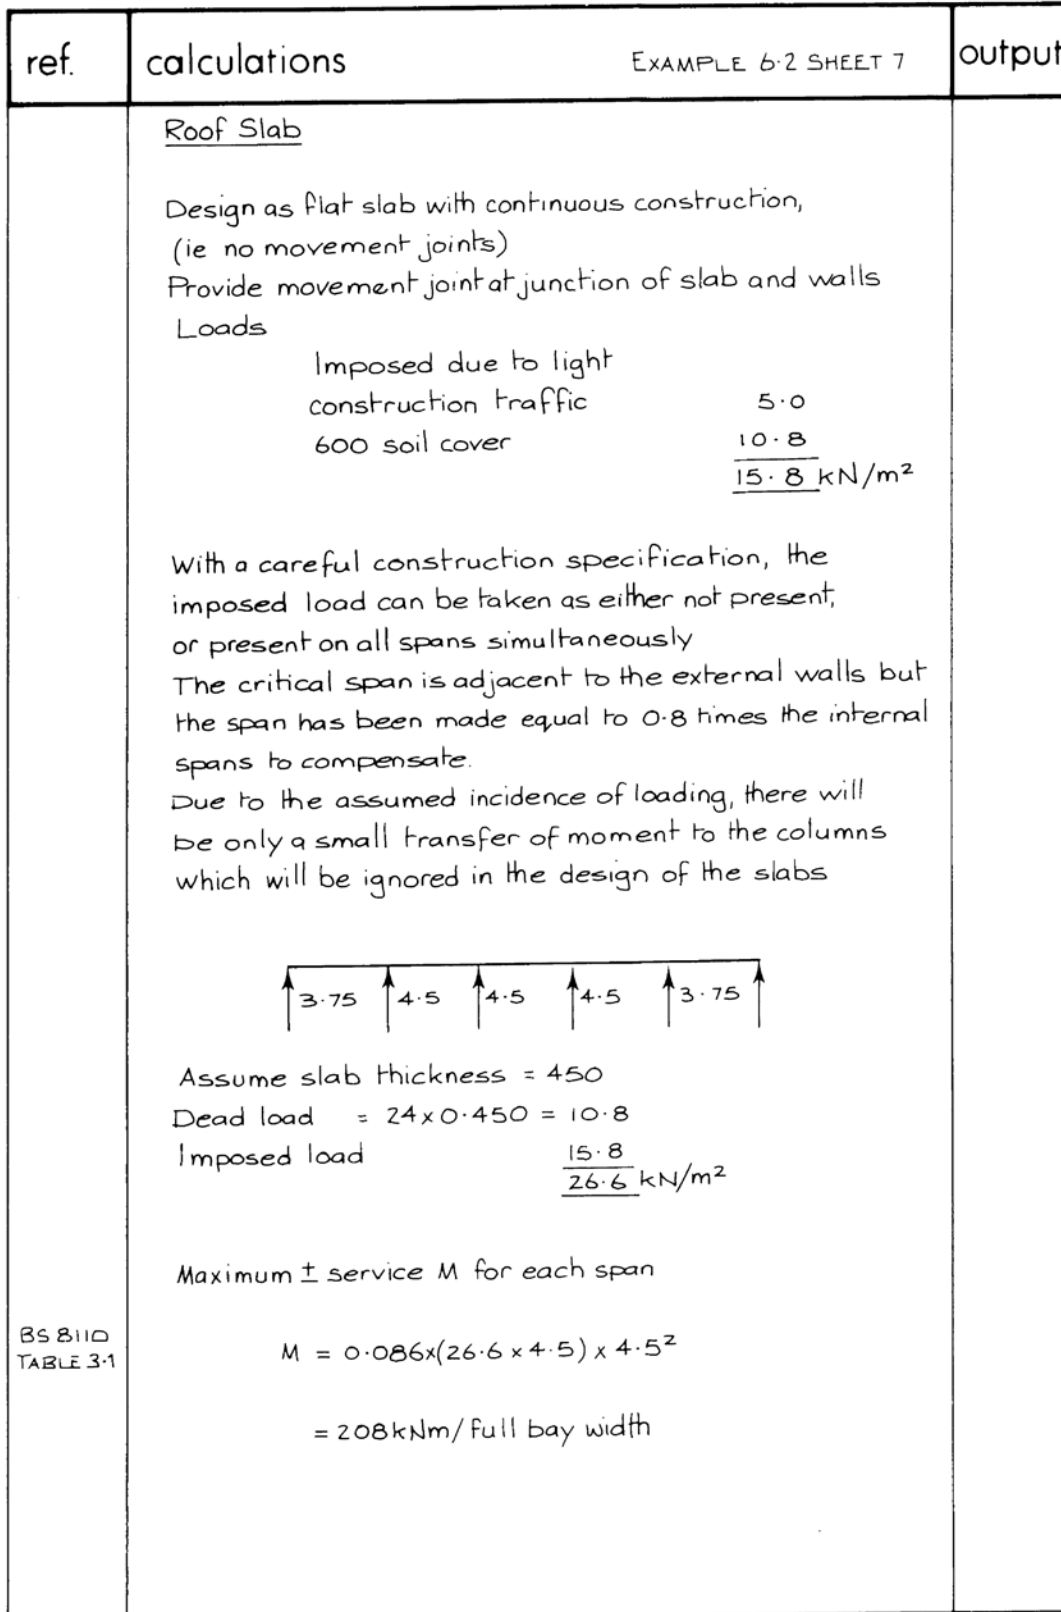 ref.
calculations
EXAMPLE 6.2 SHEET 7
output
Roof Slab
Design as flat slab with continuous construction,
(ie no movement joints)
Provide movement joint at junction of slab and walls
Loads
Imposed due to light
construction traffic 5.0
600 soil cover 10.8
15.8 kN/m²
With a careful construction specification, the
imposed load can be taken as either not present,
or present on all spans simultaneously
The critical span is adjacent to the external walls but
the span has been made equal to 0.8 times the internal
spans to compensate.
Due to the assumed incidence of loading, there will
be only a small transfer of moment to the columns
which will be ignored in the design of the slabs
3.75 4.5 4.5 4.5 3.75
Assume slab thickness = 450
Dead load = 24 x 0.450 = 10.8
Imposed load 15.8
26.6 kN/m²
Maximum ± service M for each span
BS 8110
TABLE 3.1
M = 0.086x(26.6 x 4.5) x 4.5²
= 208kNm/ full bay width